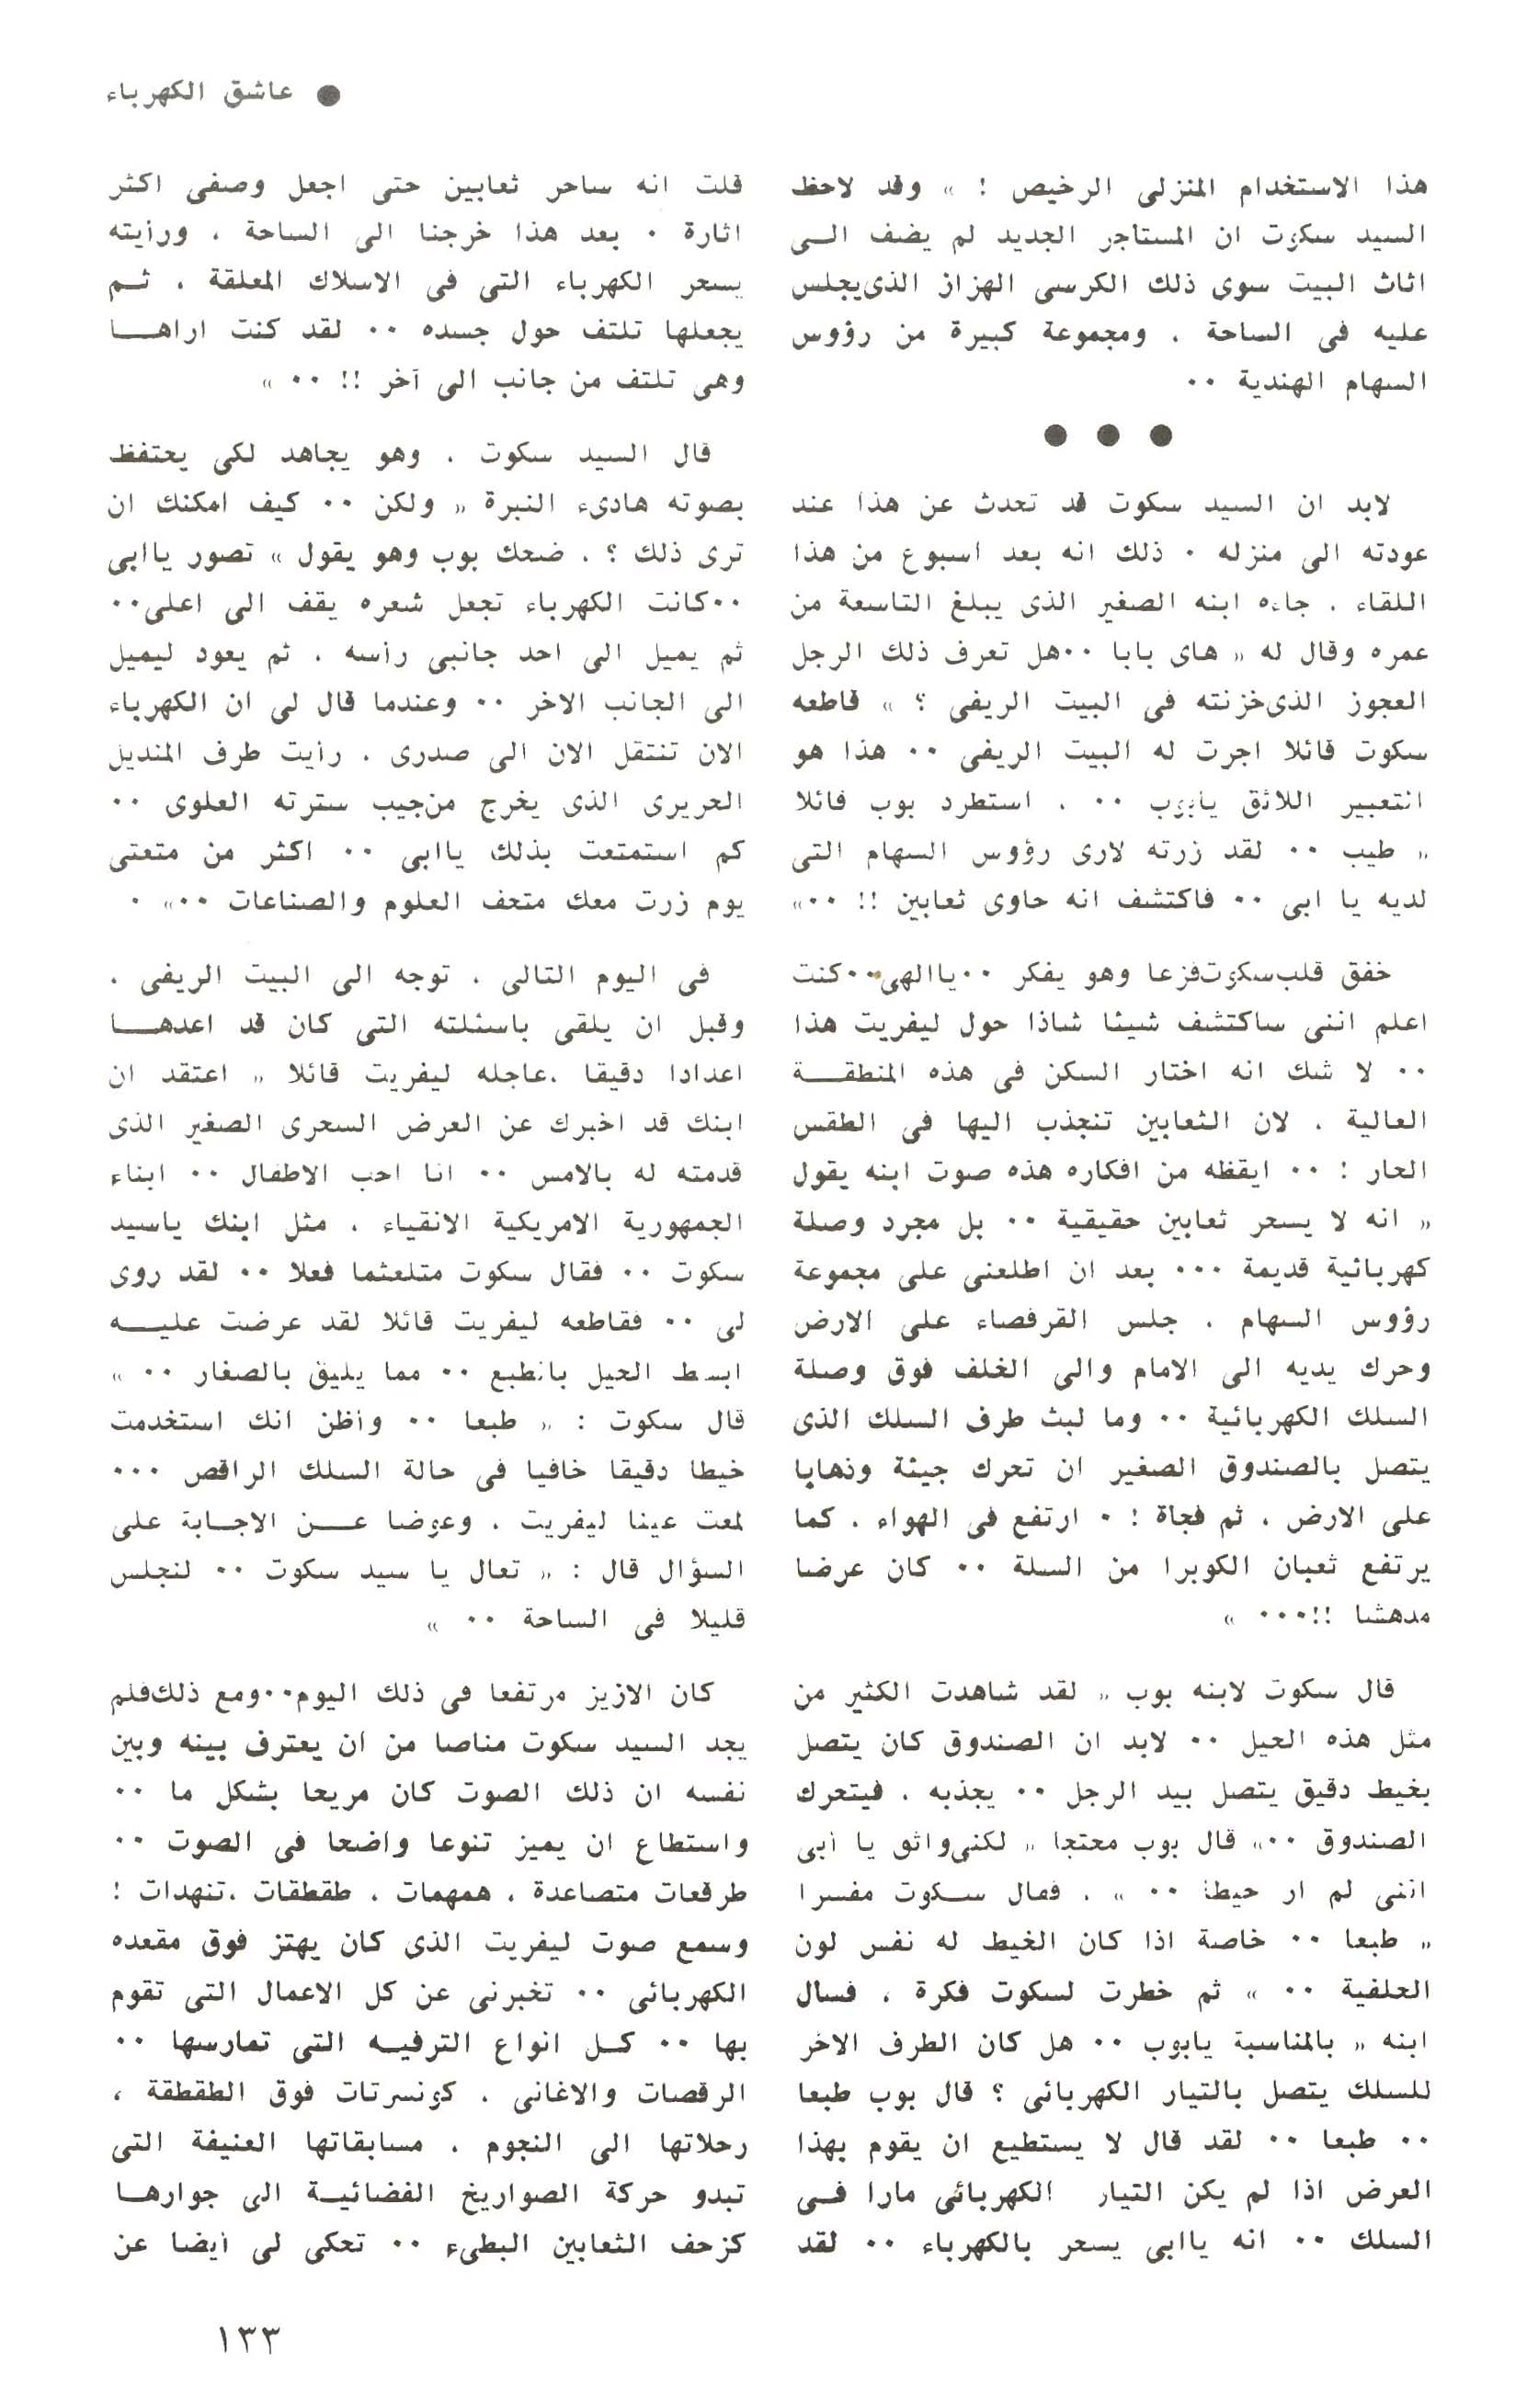 ● عاشق الكهرباء
هذا الاستخدام المنزلى الرخيص ! » وقد لاحظ
السيد سكوت ان المستاجر الجديد لم يضف الى
اثاث البيت سوى ذلك الكرسى الهزاز الذى يجلس
عليه فى الساحة ، ومجموعة كبيرة من رؤوس
السهام الهندية ٠٠
● ● ●
لابد ان السيد سكوت قد تحدث عن هذا عند
عودته الى منزله ٠ ذلك انه بعد اسبوع من هذا
اللقاء ، جاءه ابنه الصغير الذى يبلغ التاسعة من
عمره وقال له « هاى بابا ٠٠هل تعرف ذلك الرجل
العجوز الذى خزنته فى البيت الريفى ؟ » قاطعه
سكوت قائلا اجرت له البيت الريفى ٠٠ هذا هو
التعبير اللائق يابوب ٠٠ ، استطرد بوب قائلا
« طيب ٠٠ لقد زرته لارى رؤوس السهام التى
لديه يا ابى ٠٠ فاكتشف انه حاوى ثعابين !! ٠٠»
خفق قلب سكوت فزعا وهو يفكر ٠٠ياالهى٠٠كنت
اعلم اننى ساكتشف شيئا شاذا حول ليفريت هذا
٠٠ لا شك انه اختار السكن فى هذه المنطقة
العالية ، لان الثعابين تنجذب اليها فى الطقس
الحار ! ٠٠ ايقظه من افكاره هذه صوت ابنه يقول
« انه لا يسحر ثعابين حقيقية ٠٠ بل مجرد وصلة
كهربائية قديمة ٠٠٠ بعد ان اطلعنى على مجموعة
رؤوس السهام ، جلس القرفصاء على الارض
وحرك يديه الى الامام والى الخلف فوق وصلة
السلك الكهربائية ٠٠ وما لبث طرف السلك الذى
يتصل بالصندوق الصغير ان تحرك جيئة وذهابا
على الارض ، ثم فجاة ! ٠ ارتفع فى الهواء ، كما
يرتفع ثعبان الكوبرا من السلة ٠٠ كان عرضا
مدهشا !!٠٠٠ »
قال سكوت لابنه بوب « لقد شاهدت الكثير من
مثل هذه الحيل ٠٠ لابد ان الصندوق كان يتصل
بخيط دقيق يتصل بيد الرجل ٠٠ يجذبه ، فيتحرك
الصندوق ٠٠» قال بوب محتجا « لكنى واثق يا أبى
اننى لم ار خيطا ٠٠ » ، فقال سكوت مفسرا
« طبعا ٠٠ خاصة اذا كان الخيط له نفس لون
الخلفية ٠٠ » ثم خطرت لسكوت فكرة ، فسال
ابنه « بالمناسبة يابوب ٠٠ هل كان الطرف الاخر
للسلك يتصل بالتيار الكهربائى ؟ قال بوب طبعا
٠٠ طبعا ٠٠ لقد قال لا يستطيع ان يقوم بهذا
العرض اذا لم يكن التيار الكهربائى مارا فى
السلك ٠٠ انه ياابى يسحر بالكهرباء ٠٠ لقد
قلت انه ساحر ثعابين حتى اجعل وصفى اكثر
اثارة ٠ بعد هذا خرجنا الى الساحة ، ورأيته
يسحر الكهرباء التى فى الاسلاك المعلقة ، ثم
يجعلها تلتف حول جسده ٠٠ لقد كنت اراها
وهى تلتف من جانب الى آخر !! ٠٠ »
قال السيد سكوت ، وهو يجاهد لكى يحتفظ
بصوته هادىء النبرة « ولكن ٠٠ كيف امكنك ان
ترى ذلك ؟ ، ضحك بوب وهو يقول » تصور ياابى
٠٠كانت الكهرباء تجعل شعره يقف الى اعلى٠٠
ثم يميل الى احد جانبى رأسه ، ثم يعود ليميل
الى الجانب الاخر ٠٠ وعندما قال لى ان الكهرباء
الان تنتقل الان الى صدرى ، رأيت طرف المنديل
الحريرى الذى يخرج من جيب سترته العلوى ٠٠
كم استمتعت بذلك ياابى ٠٠ اكثر من متعتى
يوم زرت معك متحف العلوم والصناعات ٠٠» ٠
فى اليوم التالى ، توجه الى البيت الريفى ،
وقبل ان يلقى باسئلته التى كان قد اعدها
اعدادا دقيقا ،عاجله ليفريت قائلا « اعتقد ان
ابنك قد اخبرك عن العرض السحرى الصغير الذى
قدمته له بالامس ٠٠ انا احب الاطفال ٠٠ ابناء
الجمهورية الامريكية الانقياء ، مثل ابنك ياسيد
سكوت ٠٠ فقال سكوت متلعثما فعلا ٠٠ لقد روى
لى ٠٠ فقاطعه ليفريت قائلا لقد عرضت عليه
ابسط الحيل بالطبع ٠٠ مما يليق بالصغار ٠٠ »
قال سكوت : « طبعا ٠٠ وأظن انك استخدمت
خيطا دقيقا خافيا فى حالة السلك الراقص ٠٠٠
لمعت عينا ليفريت ، وعوضا عن الاجابة على
السؤال قال : « تعال يا سيد سكوت ٠٠ لنجلس
قليلا فى الساحة ٠٠ »
كان الازيز مرتفعا فى ذلك اليوم٠٠ومع ذلك فلم
يجد السيد سكوت مناصا من ان يعترف بينه وبين
نفسه ان ذلك الصوت كان مريحا بشكل ما ٠٠
واستطاع ان يميز تنوعا واضحا فى الصوت ٠٠
طرقعات متصاعدة ، همهمات ، طقطقات ،تنهدات !
وسمع صوت ليفريت الذى كان يهتز فوق مقعده
الكهربائى ٠٠ تخبرنى عن كل الاعمال التى تقوم
بها ٠٠ كل انواع الترفيه التى تمارسها ٠٠
الرقصات والاغانى ، كونسرتات فوق الطقطقة ،
رحلاتها الى النجوم ، مسابقاتها العنيفة التى
تبدو حركة الصواريخ الفضائية الى جوارها
كزحف الثعابين البطىء ٠٠ تحكى لى أيضا عن
١٣٣